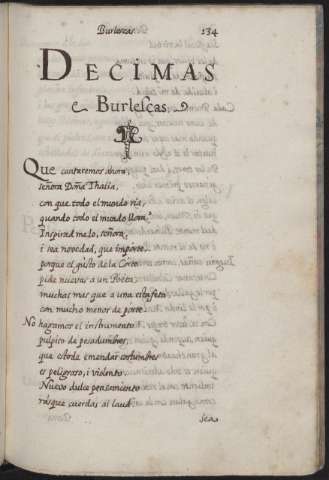 Burlescas. 134
DECIMAS
Burlescas.
Que cantaremos ahora,
señora Doña Thalia,
con que todo el mundo ria,
quando todo el mundo llora?
Inspiradmelo, señora,
i sea novedad, que importe,
porque el gusto de la Corte
pide nuevas a un Poeta
muchas mas que a una estafeta
con mucho menos de porte.
No hagamos el instrumento
pulpito de pesadumbres,
que esto de emendar costumbres
es peligroso, i violento.
Nuevo dulce pensamiento
rasque cuerdas al laud
sea